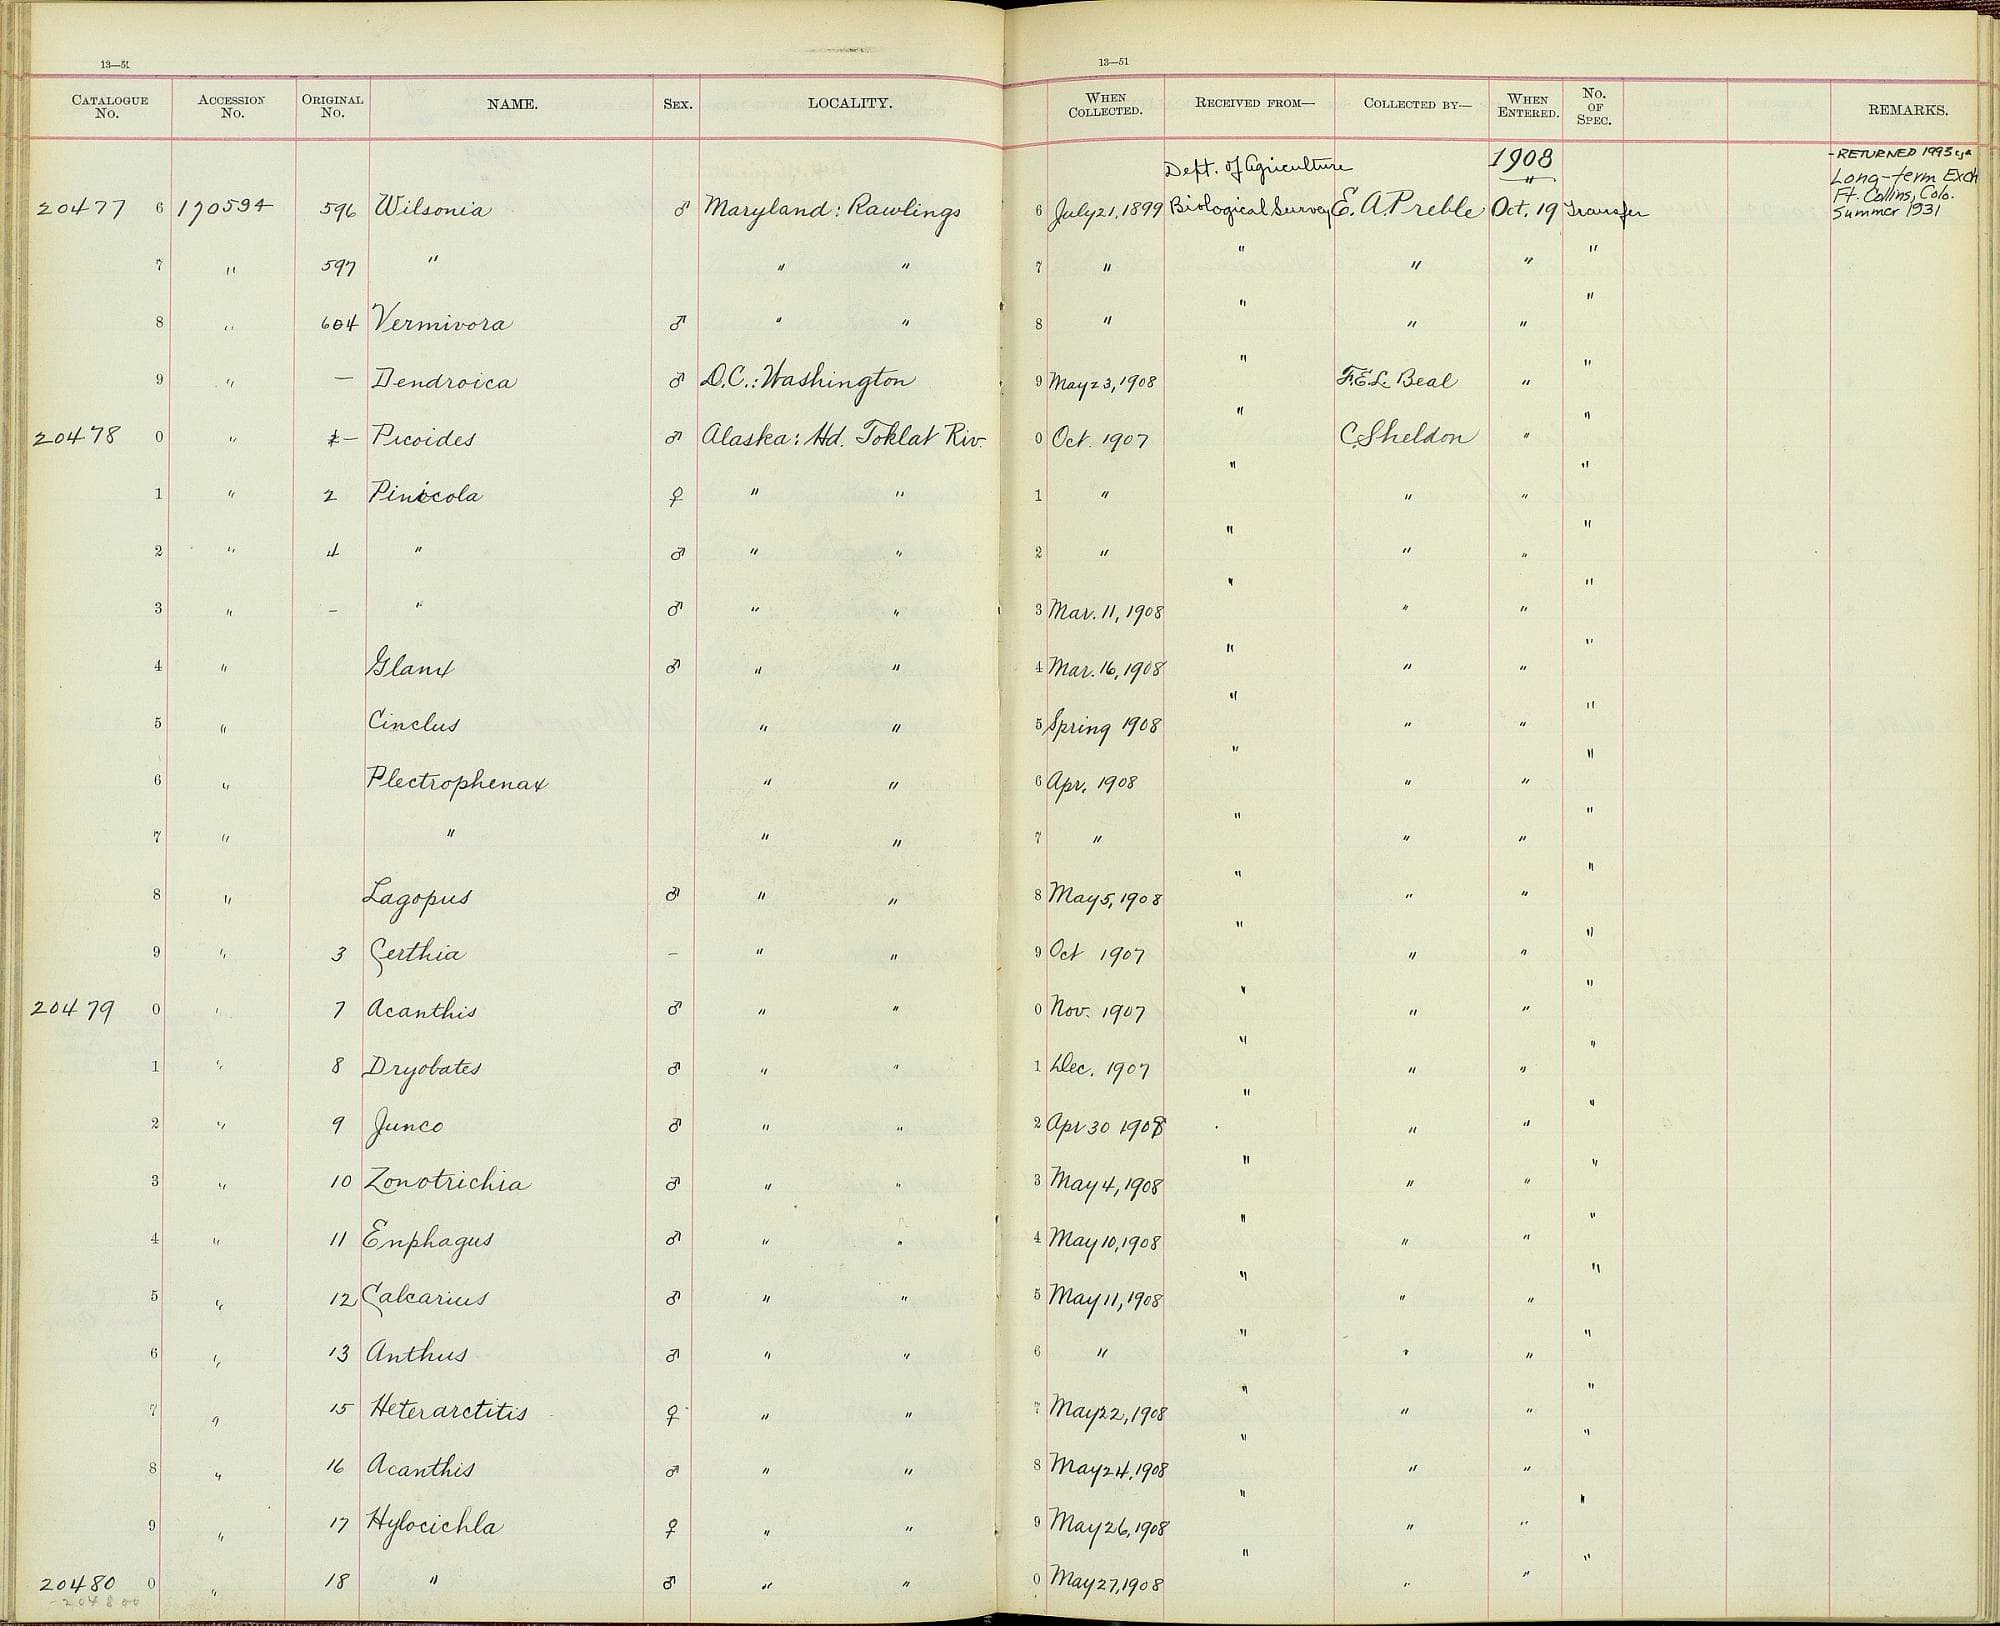 13—51
13—51
CATALOGUE No. ACCESSION No. ORIGINAL No. NAME. SEX. LOCALITY. WHEN COLLECTED. RECEIVED FROM— COLLECTED BY— WHEN ENTERED. No. OF SPEC. REMARKS.
Dept. of Agriculture 1908 - RETURNED 1993
" Long-term Exch
Ft. Collins, Colo.
Summer 1931
20477 6 170594 596 Wilsonia ♂ Maryland: Rawlings 6 July 21, 1899 Biological Survey E. A. Preble Oct. 19 Transfer
7 " 597 " " " 7 " " " " "
8 " 604 Vermivora ♂ " " 8 " " " " "
9 " — Dendroica ♂ D.C.: Washington 9 May 23, 1908 " F.E.L. Beal " "
20478 0 " — Picoides ♂ Alaska: Hd. Toklat Riv. 0 Oct. 1907 " C. Sheldon " "
1 " 2 Pinicola ♀ " " 1 " " " " "
2 " 4 " ♂ " " 2 " " " " "
3 " — " ♂ " " 3 Mar. 11, 1908 " " " "
4 " Glanx ♂ " " 4 Mar. 16, 1908 " " " "
5 " Cinclus " " 5 Spring 1908 " " " "
6 " Plectrophenax " " 6 Apr. 1908 " " " "
7 " " " " 7 " " " " "
8 " Lagopus ♂ " " 8 May 5, 1908 " " " "
9 " 3 Certhia — " " 9 Oct 1907 " " " "
20479 0 " 7 Acanthis ♂ " " 0 Nov. 1907 " " " "
1 " 8 Dryobates ♂ " " 1 Dec. 1907 " " " "
2 " 9 Junco ♂ " " 2 Apr 30 1908 " " " "
3 " 10 Zonotrichia ♂ " " 3 May 4, 1908 " " " "
4 " 11 Enphagus ♂ " " 4 May 10, 1908 " " " "
5 " 12 Calcarius ♂ " " 5 May 11, 1908 " " " "
6 " 13 Anthus ♂ " " 6 " " " " "
7 " 15 Heterarctitis ♀ " " 7 May 22, 1908 " " " "
8 " 16 Acanthis ♂ " " 8 May 24, 1908 " " " "
9 " 17 Hylocichla ♀ " " 9 May 26, 1908 " " " "
20480 0 " 18 " ♂ " " 0 May 27, 1908 " " " "
-204800